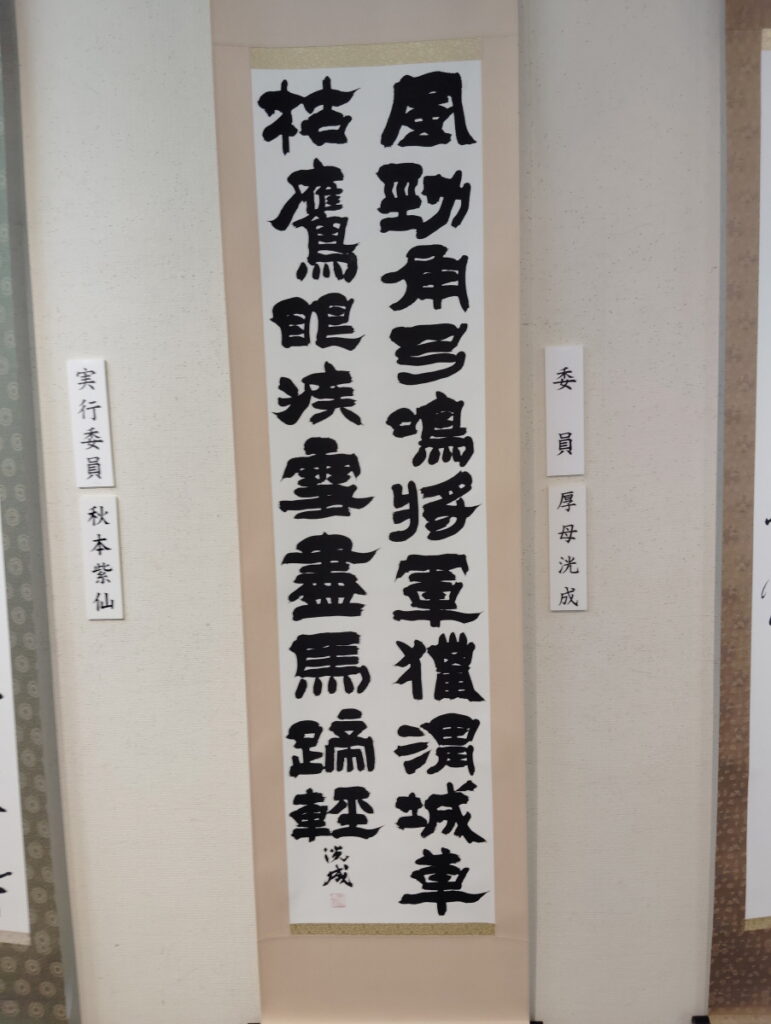 風勁角弓鳴將軍獵渭城草
枯鷹眼疾雪盡馬蹄輕
洸成
委員
厚母洸成
実行委員
秋本紫仙